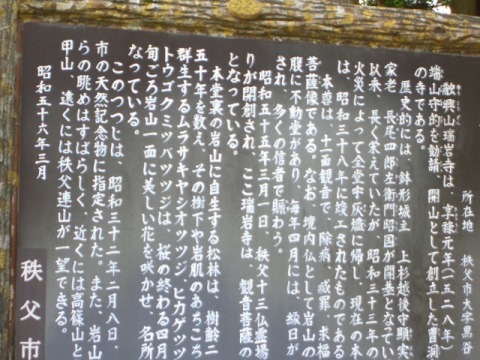 所在地　秩父市大字黒谷
融興山瑞岩寺は、享禄元年（一五二八年）
瑞山守的を勧請、開山として創立した曹洞
の寺である。
歴史的には、鉢形城主　上杉越後守顕定
家老　長尾四郎左衛門昭国が開基となってい
以来、長く栄えていたが、昭和三十三年
火災によって全堂宇灰燼に帰し、現在の本
は、昭和三十八年に竣工されたものである
本尊は、十一面観音で、除病、滅罪、求福
菩薩像である。なお、境内仏として岩山の
腹に不動堂があり、毎年四月には、縁日が
され、多くの信者で賑わう。
昭和五十五年三月一日、秩父十三仏霊場
りが開創され、ここ瑞岩寺は、観音菩薩の
となっている。
本堂裏の岩山に自生する松林は、樹齢二
五十年を数え、その樹下や岩肌のあちこち
群生するムラサキヤシオツツジ、ヒカゲツツ
トウゴクミツバツツジは、桜の終わる四月
旬ごろ岩山一面に美しい花を咲かせ、名所
なっている。
このつつじは、昭和三十二年二月八日、
市の天然記念物に指定された。また、岩山
らの眺めはすばらしく、近くには高篠山と
甲山、遠くには秩父連山が一望できる。
昭和五十六年三月
秩父市